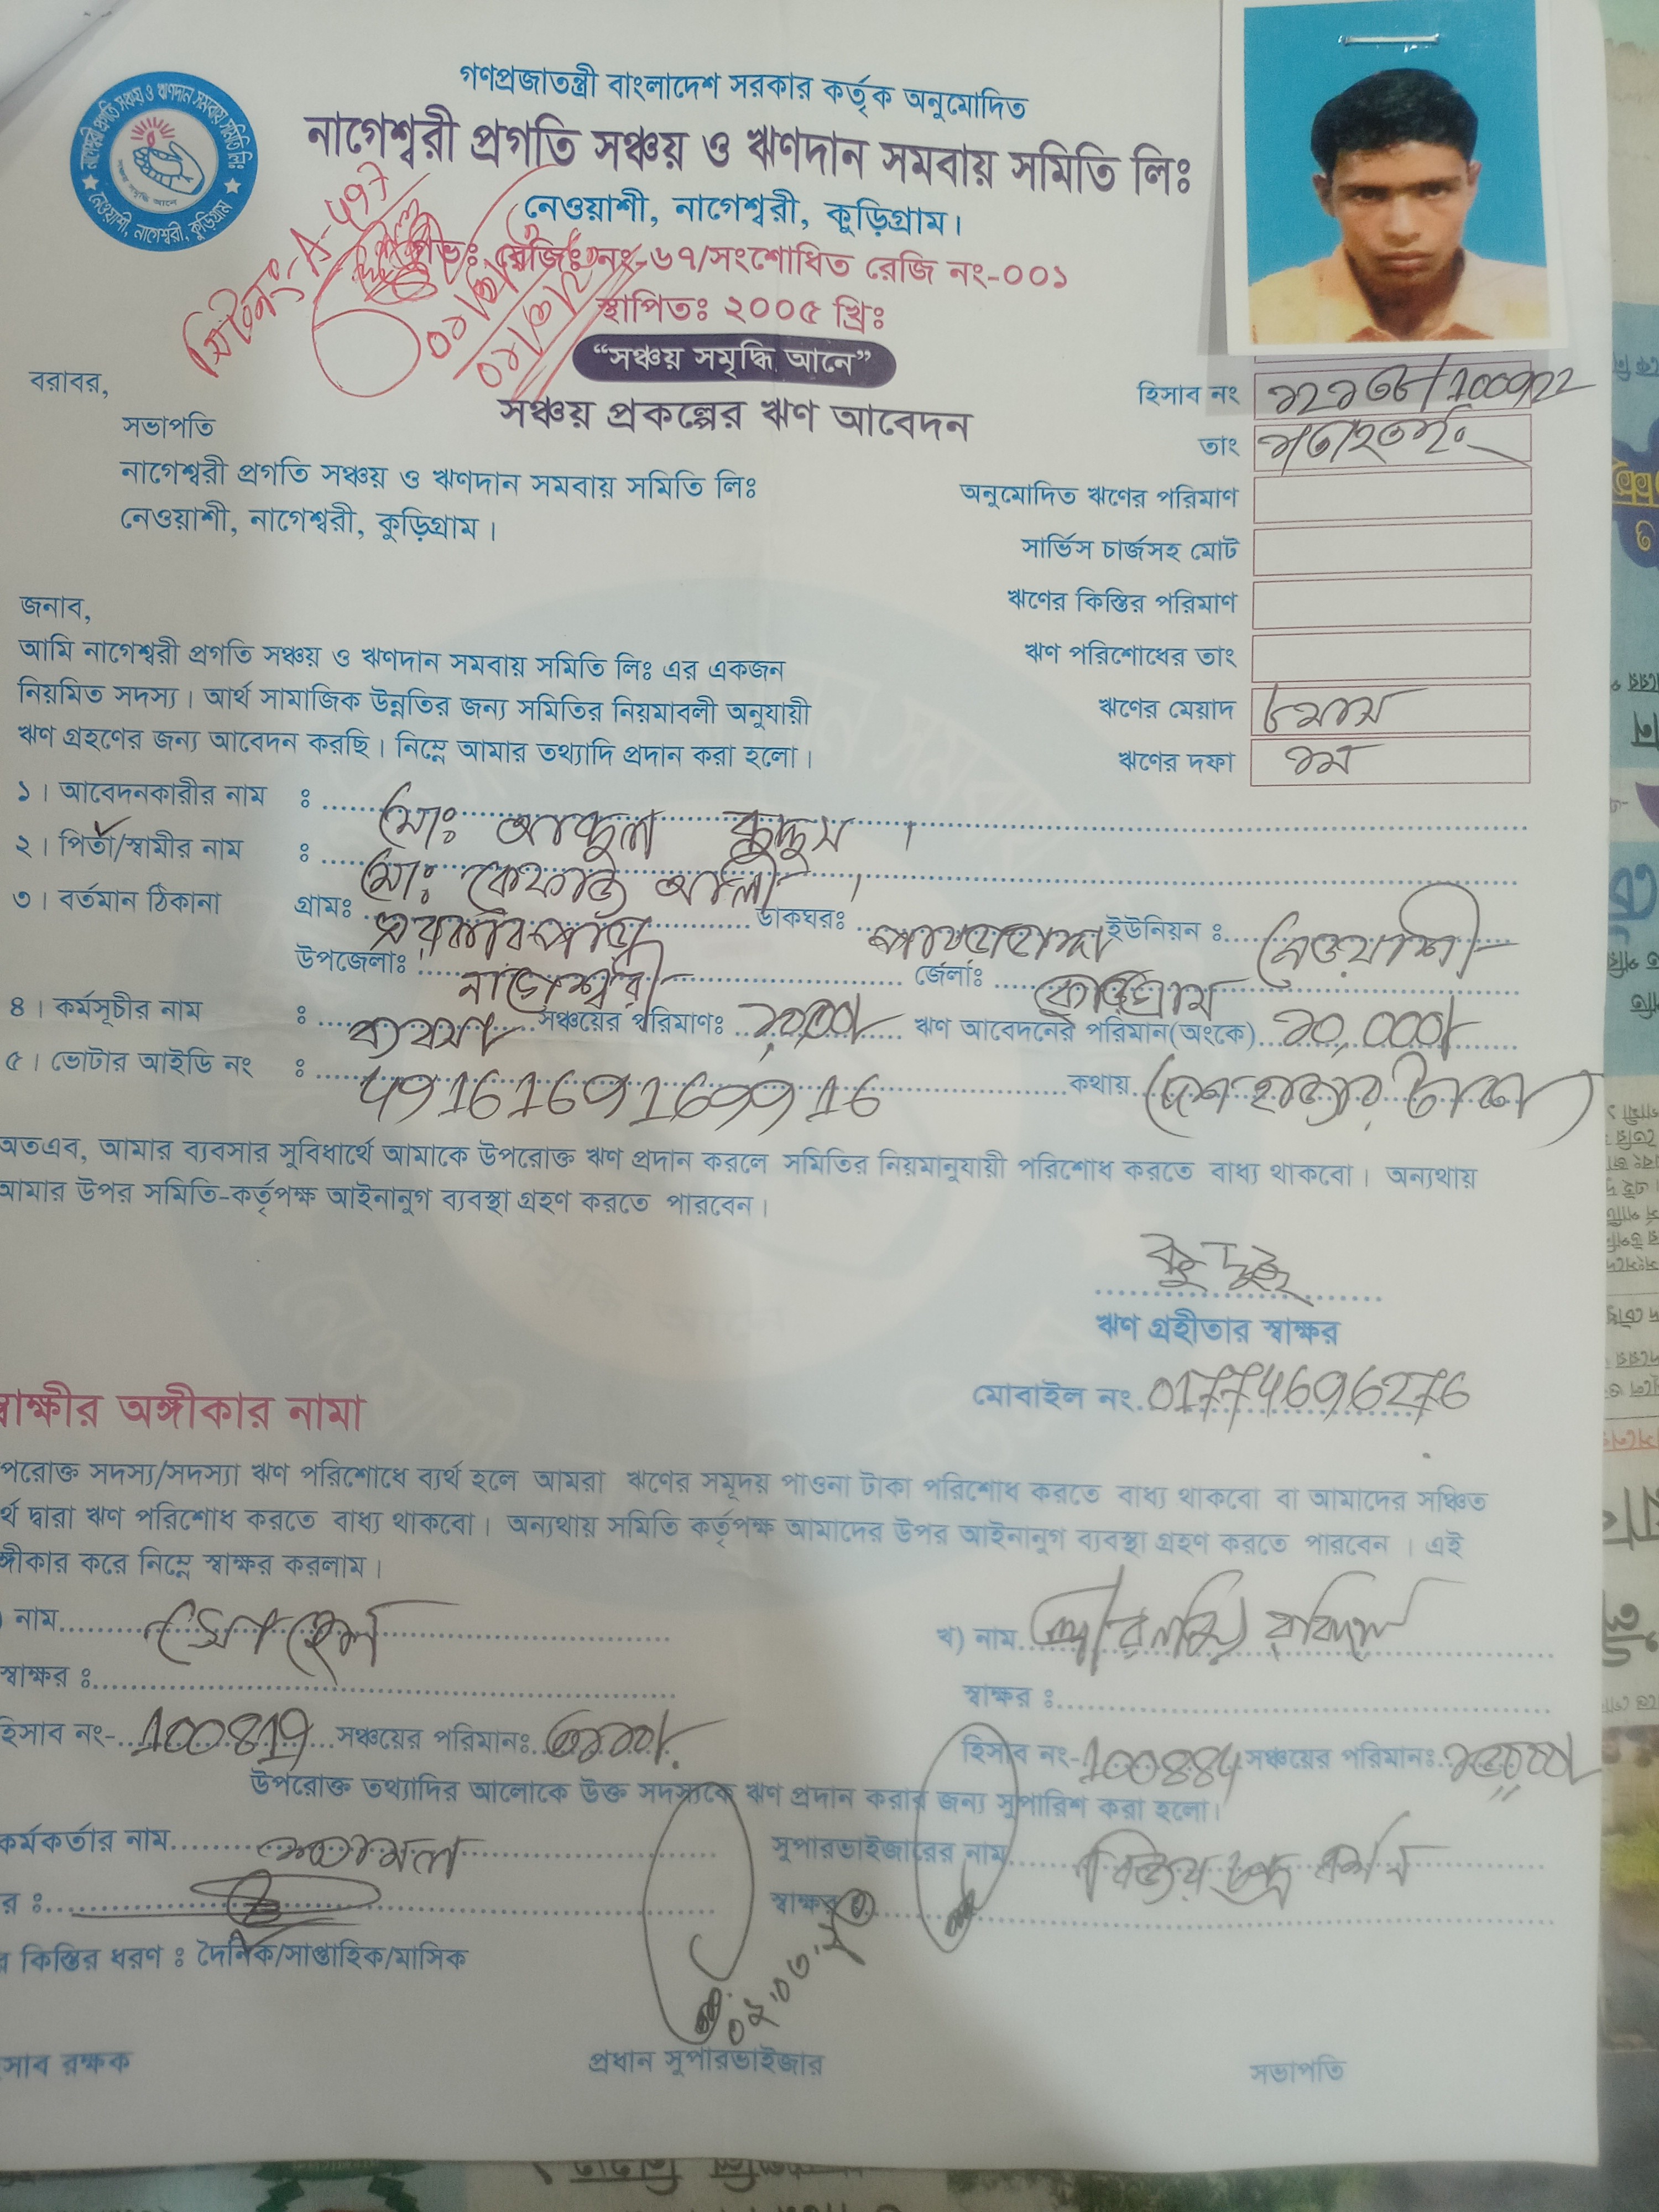 গণপ্রজাতন্ত্রী বাংলাদেশ সরকার কর্তৃক অনুমোদিত
নাগেশ্বরী প্রগতি সঞ্চয় ও ঋণদান সমবায় সমিতি লিঃ
নেওয়াশী, নাগেশ্বরী, কুড়িগ্রাম।
গভঃ রেজিঃ নং-৬৭/সংশোধিত রেজি নং-০০১
স্থাপিতঃ ২০০৫ খ্রিঃ
“সঞ্চয় সমৃদ্ধি আনে”
সঞ্চয় প্রকল্পের ঋণ আবেদন
বরাবর,
সভাপতি
নাগেশ্বরী প্রগতি সঞ্চয় ও ঋণদান সমবায় সমিতি লিঃ
নেওয়াশী, নাগেশ্বরী, কুড়িগ্রাম।
হিসাব নং
তাং
অনুমোদিত ঋণের পরিমাণ
সার্ভিস চার্জসহ মোট
ঋণের কিস্তির পরিমাণ
ঋণ পরিশোধের তাং
ঋণের মেয়াদ ৮ মাস
ঋণের দফা ১ম
জনাব,
আমি নাগেশ্বরী প্রগতি সঞ্চয় ও ঋণদান সমবায় সমিতি লিঃ এর একজন
নিয়মিত সদস্য। আর্থ সামাজিক উন্নতির জন্য সমিতির নিয়মাবলী অনুযায়ী
ঋণ গ্রহণের জন্য আবেদন করছি। নিম্নে আমার তথ্যাদি প্রদান করা হলো।
১। আবেদনকারীর নাম ঃ মোঃ আব্দুল কুদ্দুস।
২। পিতা/স্বামীর নাম ঃ মোঃ কেফাত আলী।
৩। বর্তমান ঠিকানা গ্রামঃ সরকারপাড়া ডাকঘরঃ ইউনিয়ন ঃ নেওয়াশী
উপজেলাঃ নাগেশ্বরী জেলাঃ কুড়িগ্রাম
৪। কর্মসূচীর নাম ঃ ব্যবসা সঞ্চয়ের পরিমাণঃ ঋণ আবেদনের পরিমান(অংকে) ১০,০০০/-
৫। ভোটার আইডি নং ঃ 4916169169916 কথায় (দশ হাজার টাকা)
অতএব, আমার ব্যবসার সুবিধার্থে আমাকে উপরোক্ত ঋণ প্রদান করলে সমিতির নিয়মানুযায়ী পরিশোধ করতে বাধ্য থাকবো। অন্যথায়
আমার উপর সমিতি-কর্তৃপক্ষ আইনানুগ ব্যবস্থা গ্রহণ করতে পারবেন।
ঋণ গ্রহীতার স্বাক্ষর
মোবাইল নং. 01774696276
াক্ষীর অঙ্গীকার নামা
পরোক্ত সদস্য/সদস্যা ঋণ পরিশোধে ব্যর্থ হলে আমরা ঋণের সমূদয় পাওনা টাকা পরিশোধ করতে বাধ্য থাকবো বা আমাদের সঞ্চিত
র্থ দ্বারা ঋণ পরিশোধ করতে বাধ্য থাকবো। অন্যথায় সমিতি কর্তৃপক্ষ আমাদের উপর আইনানুগ ব্যবস্থা গ্রহণ করতে পারবেন। এই
ঙ্গীকার করে নিম্নে স্বাক্ষর করলাম।
নাম সোহেল খ) নাম
স্বাক্ষর ঃ স্বাক্ষর ঃ
হিসাব নং- 100819 সঞ্চয়ের পরিমানঃ হিসাব নং- 100884 সঞ্চয়ের পরিমানঃ
উপরোক্ত তথ্যাদির আলোকে উক্ত সদস্যকে ঋণ প্রদান করার জন্য সুপারিশ করা হলো।
কর্মকর্তার নাম সুপারভাইজারের নাম বিজয় চন্দ্র বর্মন
র ঃ স্বাক্ষর
র কিস্তির ধরণ ঃ দৈনিক/সাপ্তাহিক/মাসিক
সাব রক্ষক প্রধান সুপারভাইজার সভাপতি